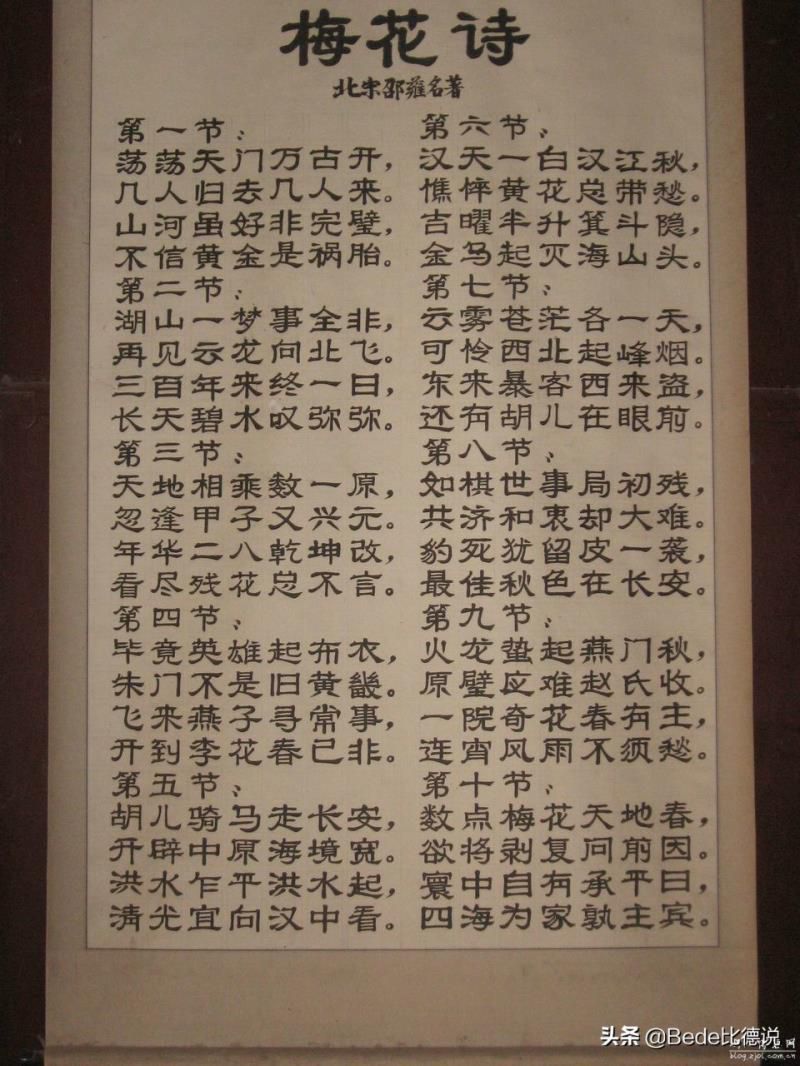 梅花诗
北宋邵雍名著
第一节：
荡荡天门万古开，
几人归去几人来。
山河虽好非完璧，
不信黄金是祸胎。
第二节：
湖山一梦事全非，
再见云龙向北飞。
三百年来终一日，
长天碧水叹弥弥。
第三节：
天地相乘数一原，
忽逢甲子又兴元。
年华二八乾坤改，
看尽残花总不言。
第四节：
毕竟英雄起布衣，
朱门不是旧黄畿。
飞来燕子寻常事，
开到李花春已非。
第五节：
胡儿骑马走长安，
开辟中原海境宽。
洪水乍平洪水起，
清光宜向汉中看。
第六节：
汉天一白汉江秋，
憔悴黄花总带愁。
吉曜半升箕斗隐，
金马起灭海山头。
第七节：
云雾苍茫各一天，
可怜西北起峰烟。
东来暴客西来盗，
还有胡儿在眼前。
第八节：
如棋世事局初残，
共济和衷却大难。
豹死犹留皮一袭，
最佳秋色在长安。
第九节：
火龙蛰起燕门秋，
原璧应难赵氏收。
一院奇花春有主，
连宵风雨不须愁。
第十节：
数点梅花天地春，
欲将剥复问前因。
寰中自有承平日，
四海为家孰主宾。
头条 @Bede比德说
blog.zjol.com.cn